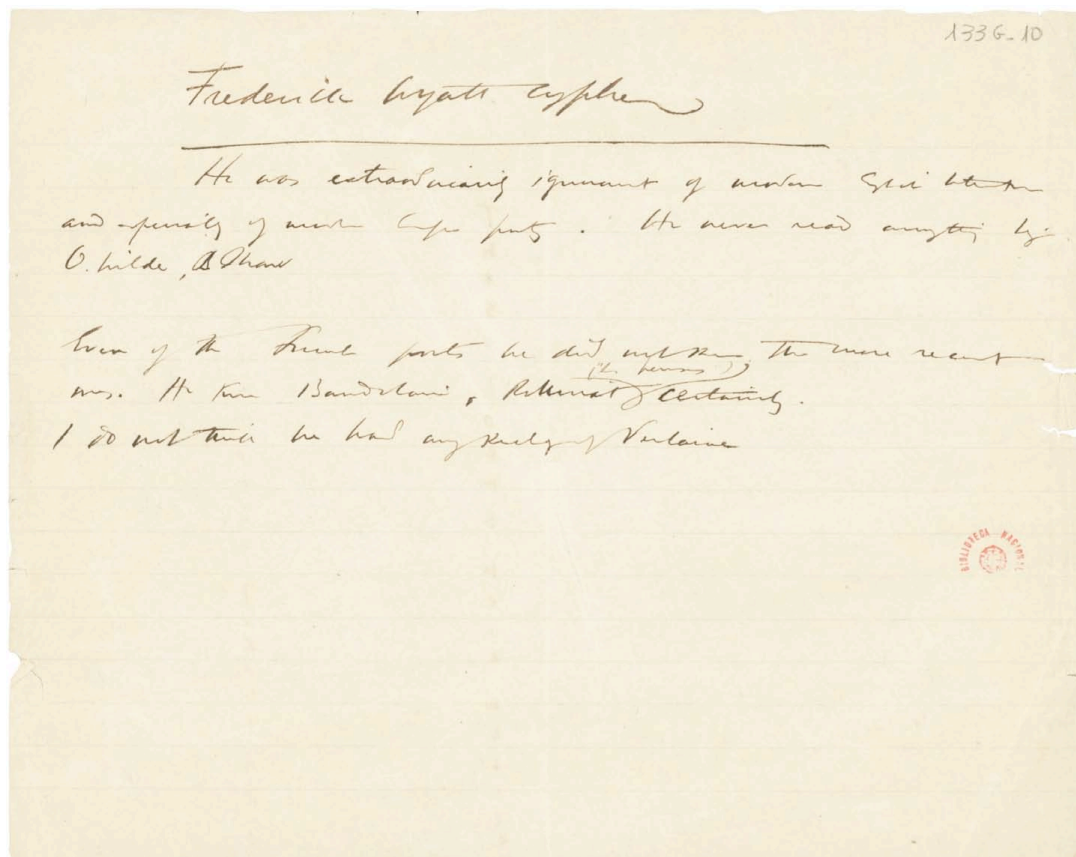 133G-10
Frederick Wyatt Cypher
He was extraordinarily ignorant of modern English literature
and especially of modern English poetry. He never read anything by
O. Wilde, B Shaw
Even of the French poets he did not know the more recent
(the perverse)
ones. He knew Baudelaire, Rollinat certainly.
I do not think he had any knowledge of Verlaine
BIBLIOTECA NACIONAL